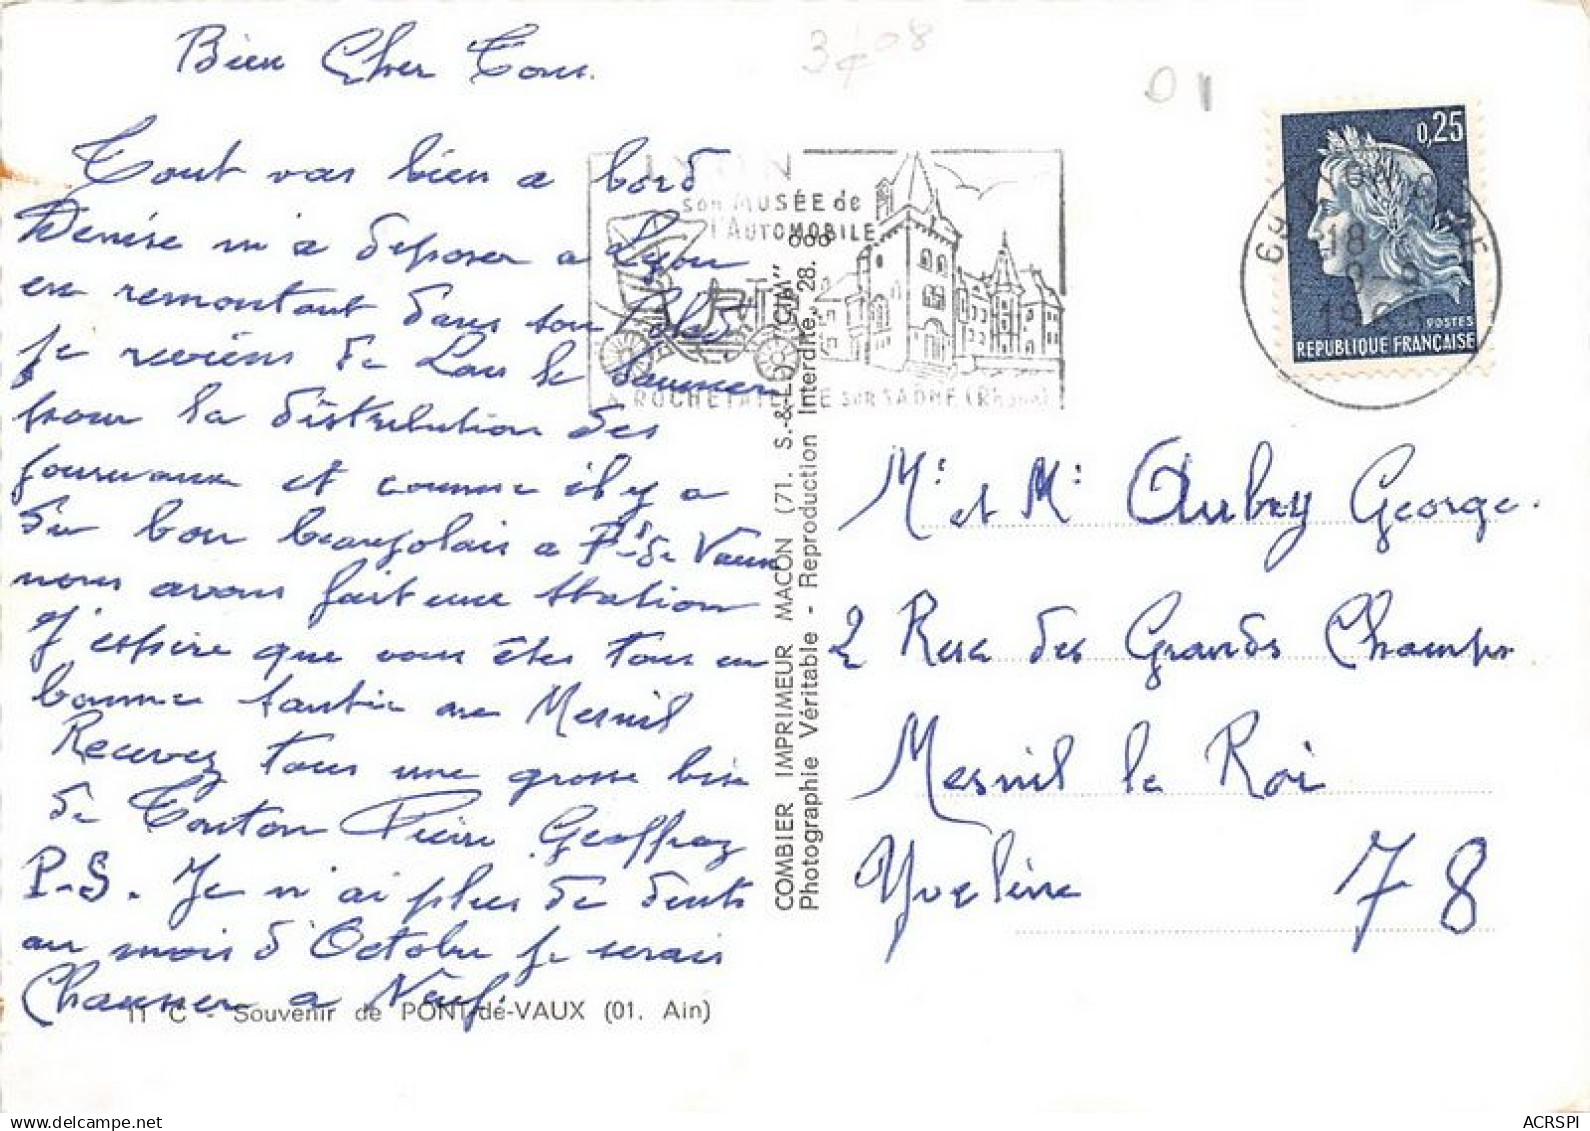 3 € 08
01
Bien Cher Tous.
Tout vas bien a bord
Denise m'a deposer a Lyon
en remontant dans son
je reviens de Lons le Saunier
pour la distribution des
journaux et comme il y a
du bon beaujolais a Pt de Vaux
nous avons fait une station
J'espère que vous êtes tous en
bonne santée au Mesnil
Recevez tous une grosse bise
de Tonton Pierre Geoffray
P.S. Je n'ai plus de dents
au mois d'Octobre je serais
Chausser a Neuf.
11 C - Souvenir de PONT-de-VAUX (01. Ain)
COMBIER IMPRIMEUR MACON (71. S.-&-L.) "CIM"
Photographie Véritable - Reproduction Interdite, 28.
LYON
son MUSÉE de
l'AUTOMOBILE
A ROCHETAILLÉE sur SAONE (Rhône)
0,25
POSTES
REPUBLIQUE FRANÇAISE
69 LYON GARE
18
9 - 9
Mr et Mr Aubry George.
2 Rue des Grands Champs
Mesnil le Roi
Yveline 78
ACRSPI